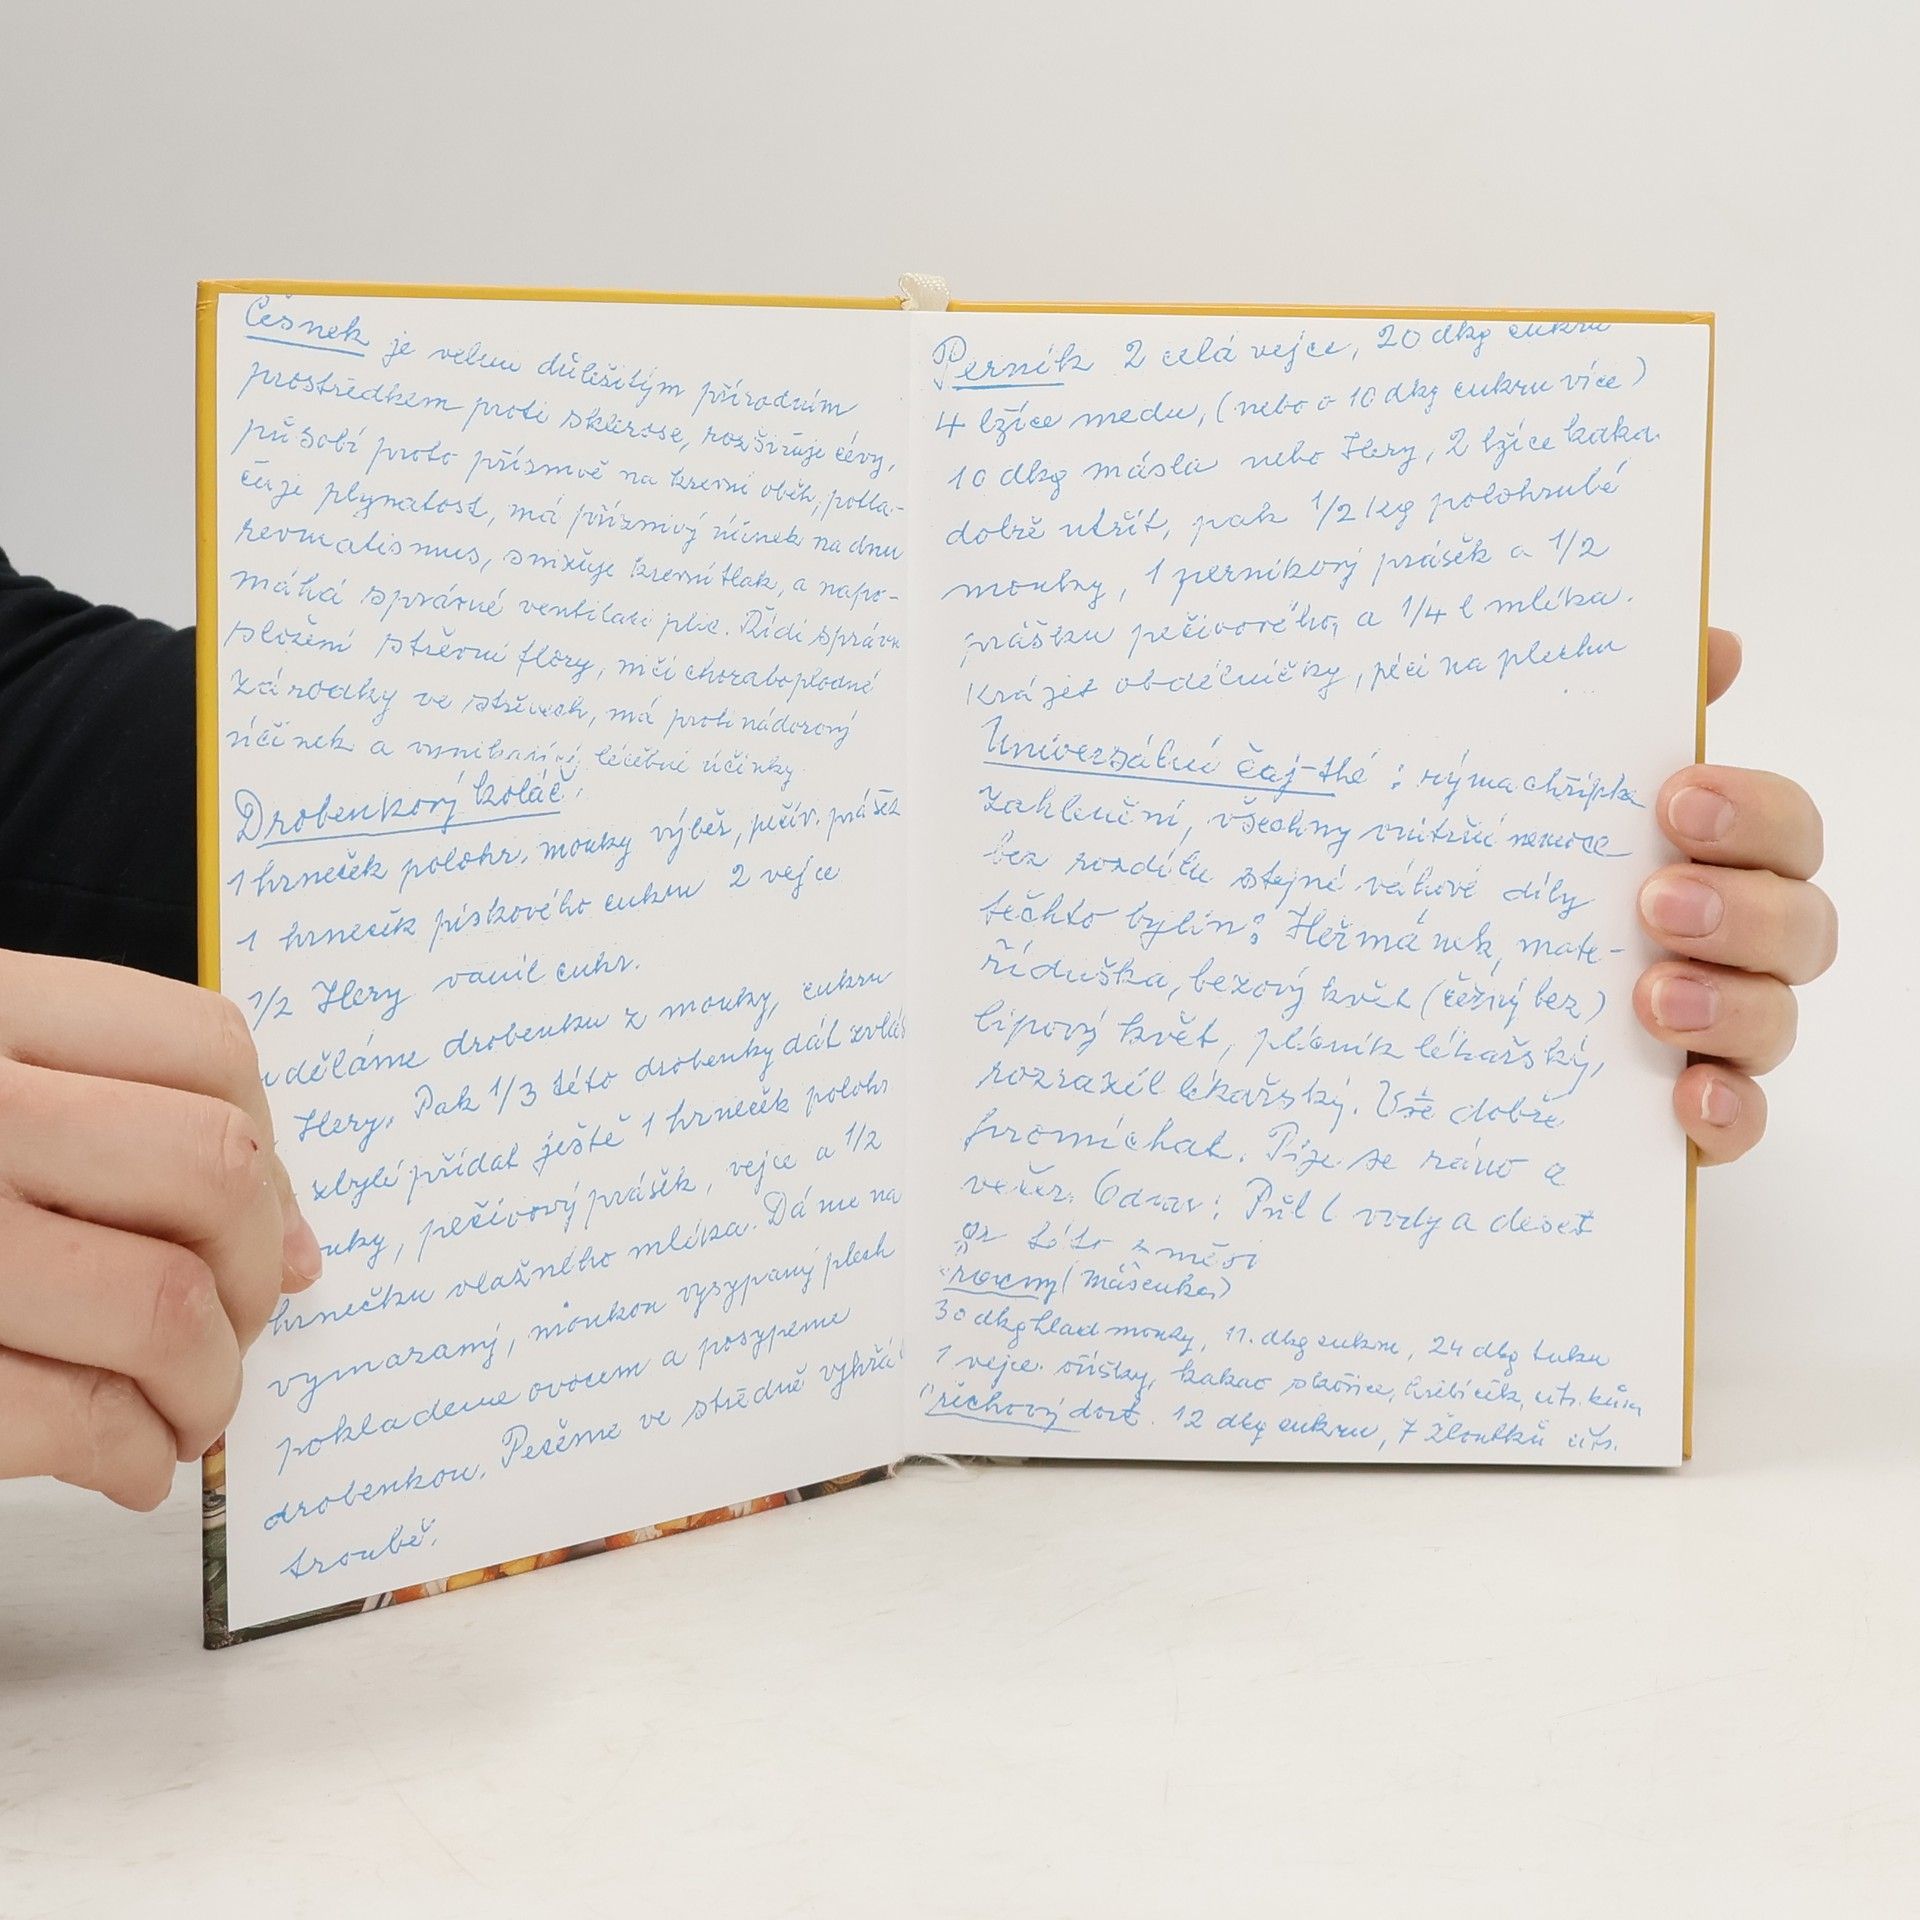 Česnek je velmi důležitým přírodním
prostředkem proti sklerose, rozšiřuje cévy,
působí proto příznivě na krevní oběh, potla-
čuje plynatost, má příznivý účinek na dnu
revmatismus, snižuje krevní tlak, a napo-
máhá správné ventilaci plic. Řídí správn
složení střevní flóry, ničí choraboplodné
zárodky ve střevech, má protinádorový
účinek a vynikající léčebné účinky
Drobenkový koláč.
1 hrneček polohr. mouky výběr, pečiv. prášek
1 hrneček pískového cukru 2 vejce
1/2 Hery vanil cukr.
uděláme drobenku z mouky, cukru
Hery. Pak 1/3 této drobenky dát zvláš
zbylé přidat ještě 1 hrneček polohr
ouky, pečivový prášek, vejce a 1/2
hrnečku vlažného mléka. Dáme na
vymazaný, moukou vysypaný plech
poklademe ovocem a posypeme
drobenkou. Pečeme ve středně vyhřá
troubě.
Perník 2 celá vejce, 20 dkg cukru
4 lžíce medu, (nebo o 10 dkg cukru více)
10 dkg másla nebo Hery, 2 lžíce kaka.
dobře utřít, pak 1/2 kg polohrubé
mouky, 1 perníkový prášek a 1/2
prášku pečivového, a 1/4 l mléka.
Krájet obdélníčky, péci na plechu
Universální čaj-thé : rýma chřipka
zahlenění, všechny vnitřní nemoce
bez rozdílu stejné váhové díly
těchto bylin: Heřmánek, mate-
řídouška, bezový květ (černý bez)
lipový květ, plicník lékařský,
rozrazil lékařský. Vše dobře
promíchat. Pije se ráno a
večer. Odvar: Půl l vody a deset
gr této směsi
rovny (mášenka)
30 dkg hlad mouky, 11. dkg cukru, 24 dkg tuku
1 vejce. oříšky, kakao skořice, hřebíček, cit. kůra
řechový dort. 12 dkg cukru, 7 žloutků utř.